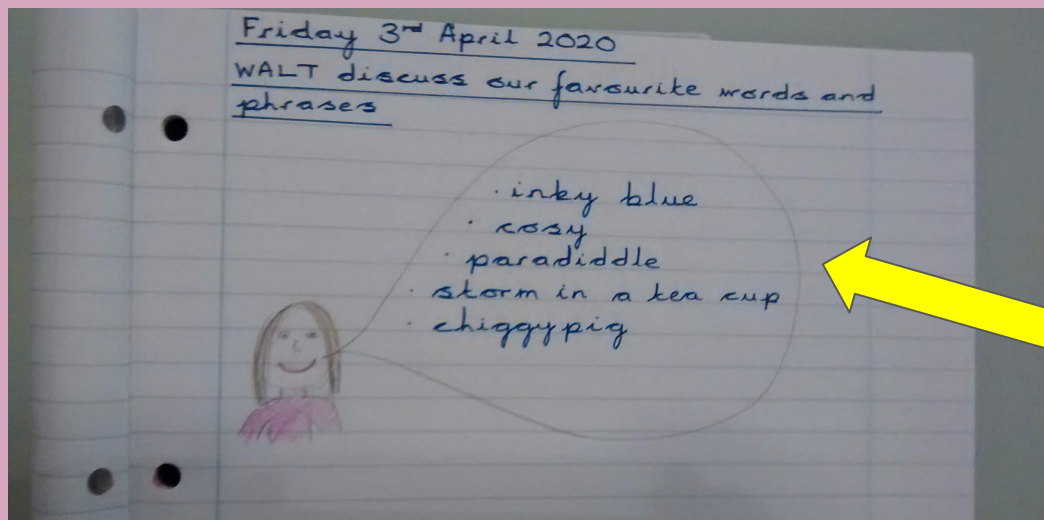 Friday 3rd April 2020
WALT discuss our favourite words and
phrases
· inky blue
· cosy
· paradiddle
· storm in a tea cup
· chiggypig